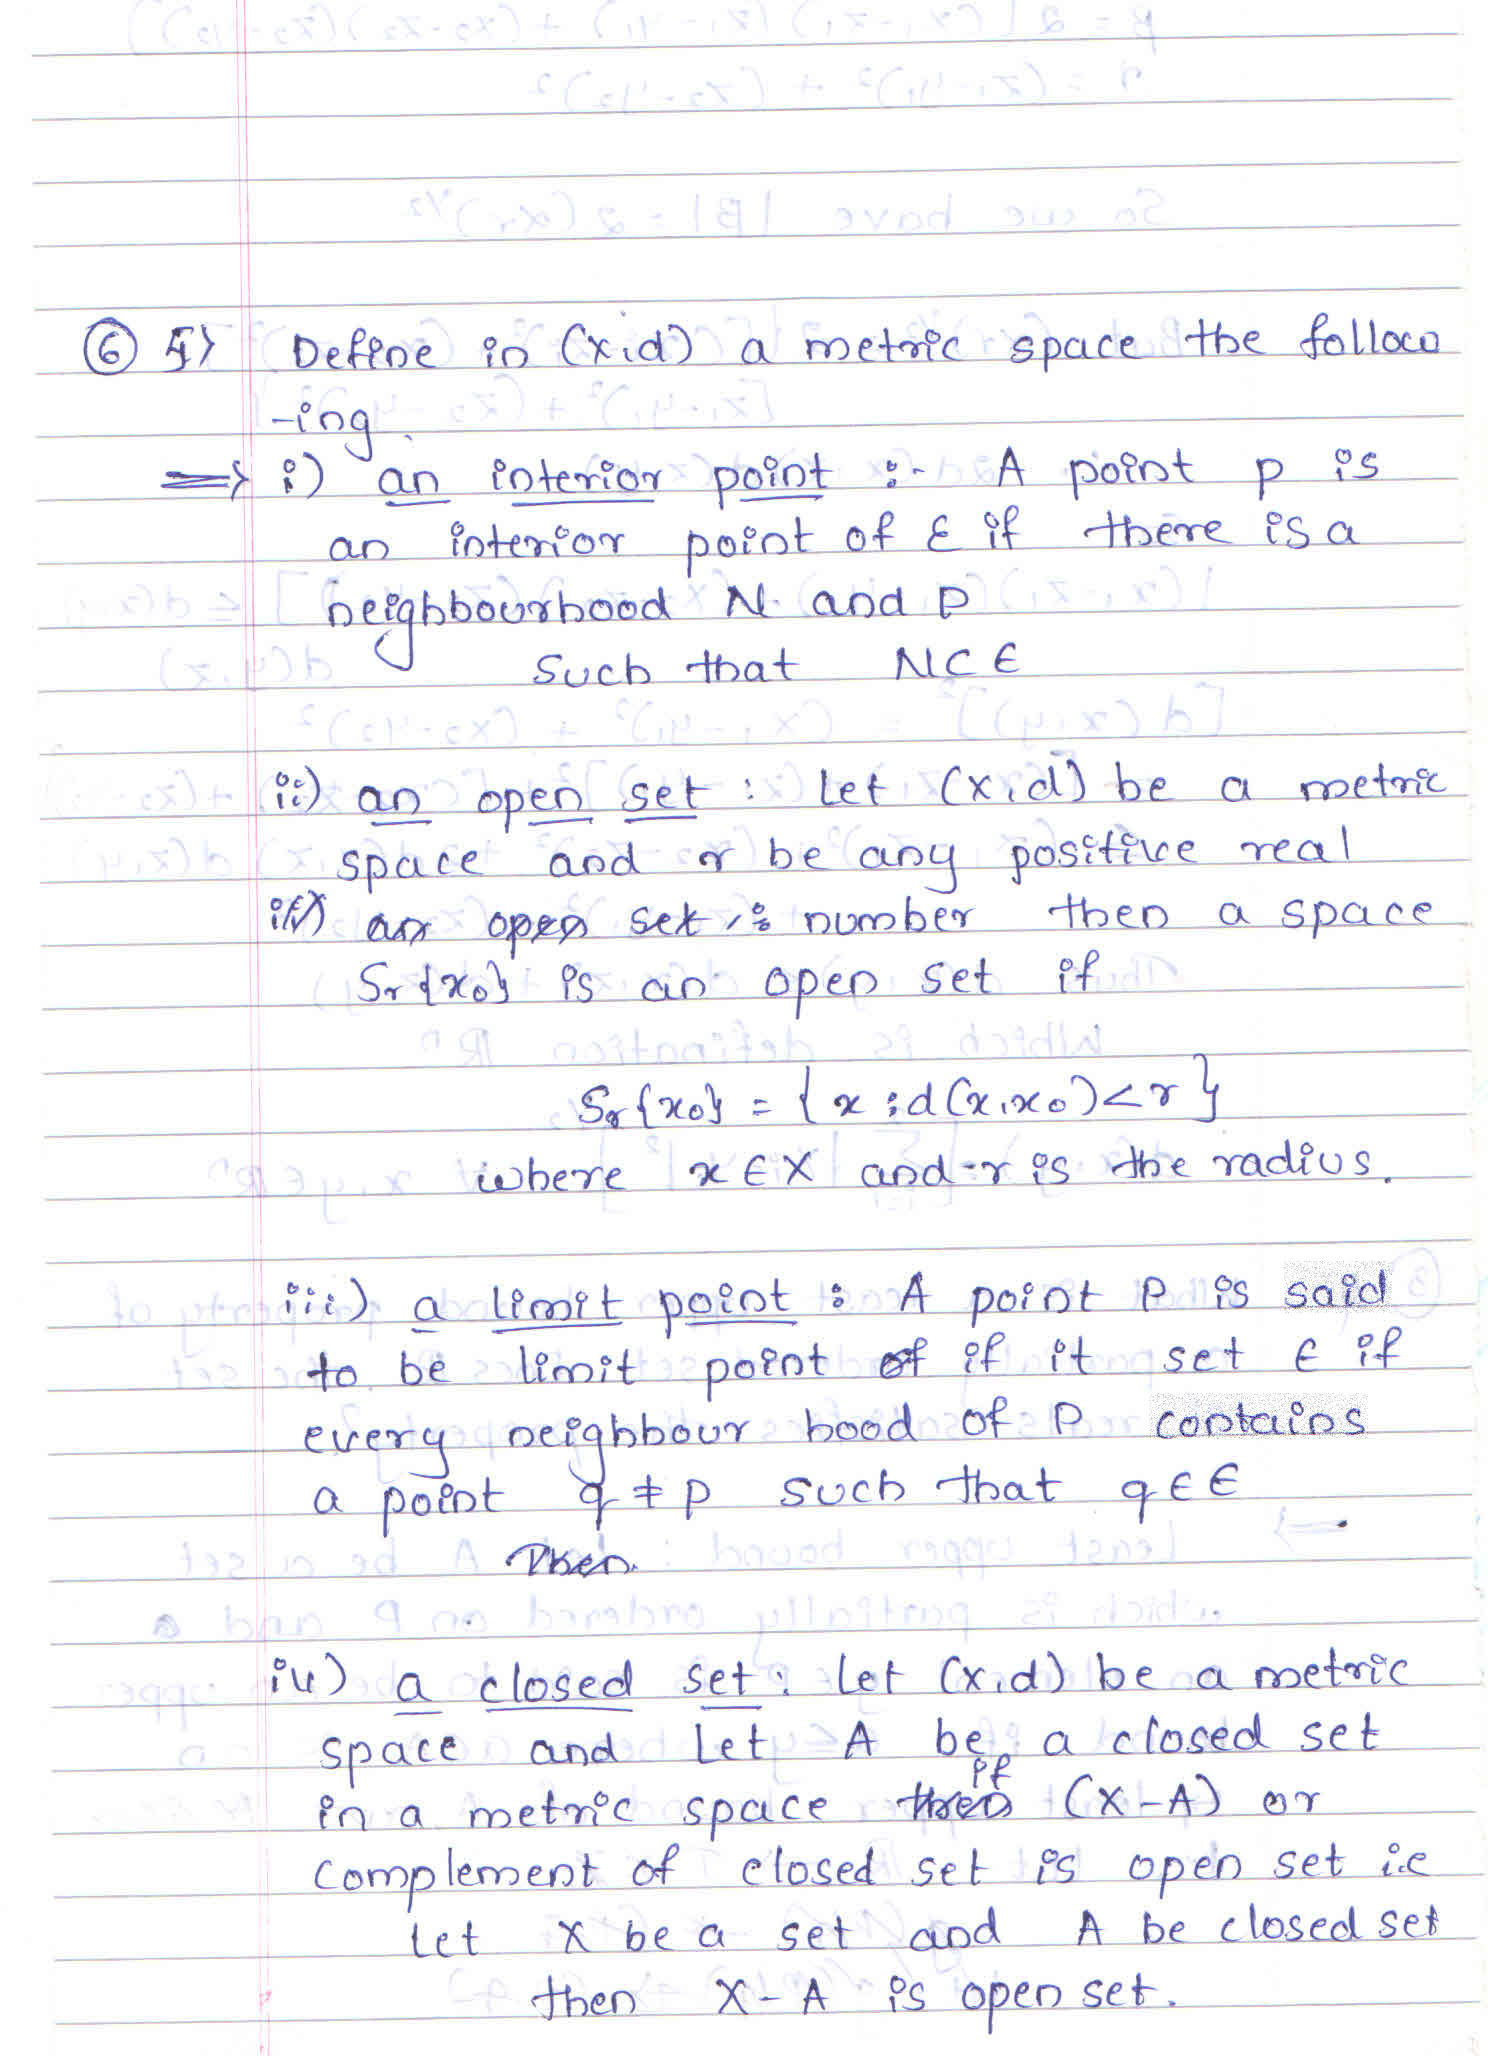 ⑥ 5> Define in (X,d) a metric space the follow
-ing.
⟹ i) an interior point :- A point p is
an interior point of E if there is a
neighbourhood N and p
such that N⊂E
ii) an open set : Let (X,d) be a metric
space and r be any positive real
an open set : number then a space
Sr{x0} is an open set if
Sr{x0} = {x : d(x,x0) < r}
where x∈X and r is the radius.
iii) a limit point : A point P is said
to be limit point of if it set E if
every neighbour hood of P contains
a point q≠p such that q∈E
Then.
iv) a closed set : Let (X,d) be a metric
space and Let A be a closed set
if
in a metric space then (X-A) or
complement of closed set is open set i.e
Let X be a set and A be closed set
then X-A is open set.